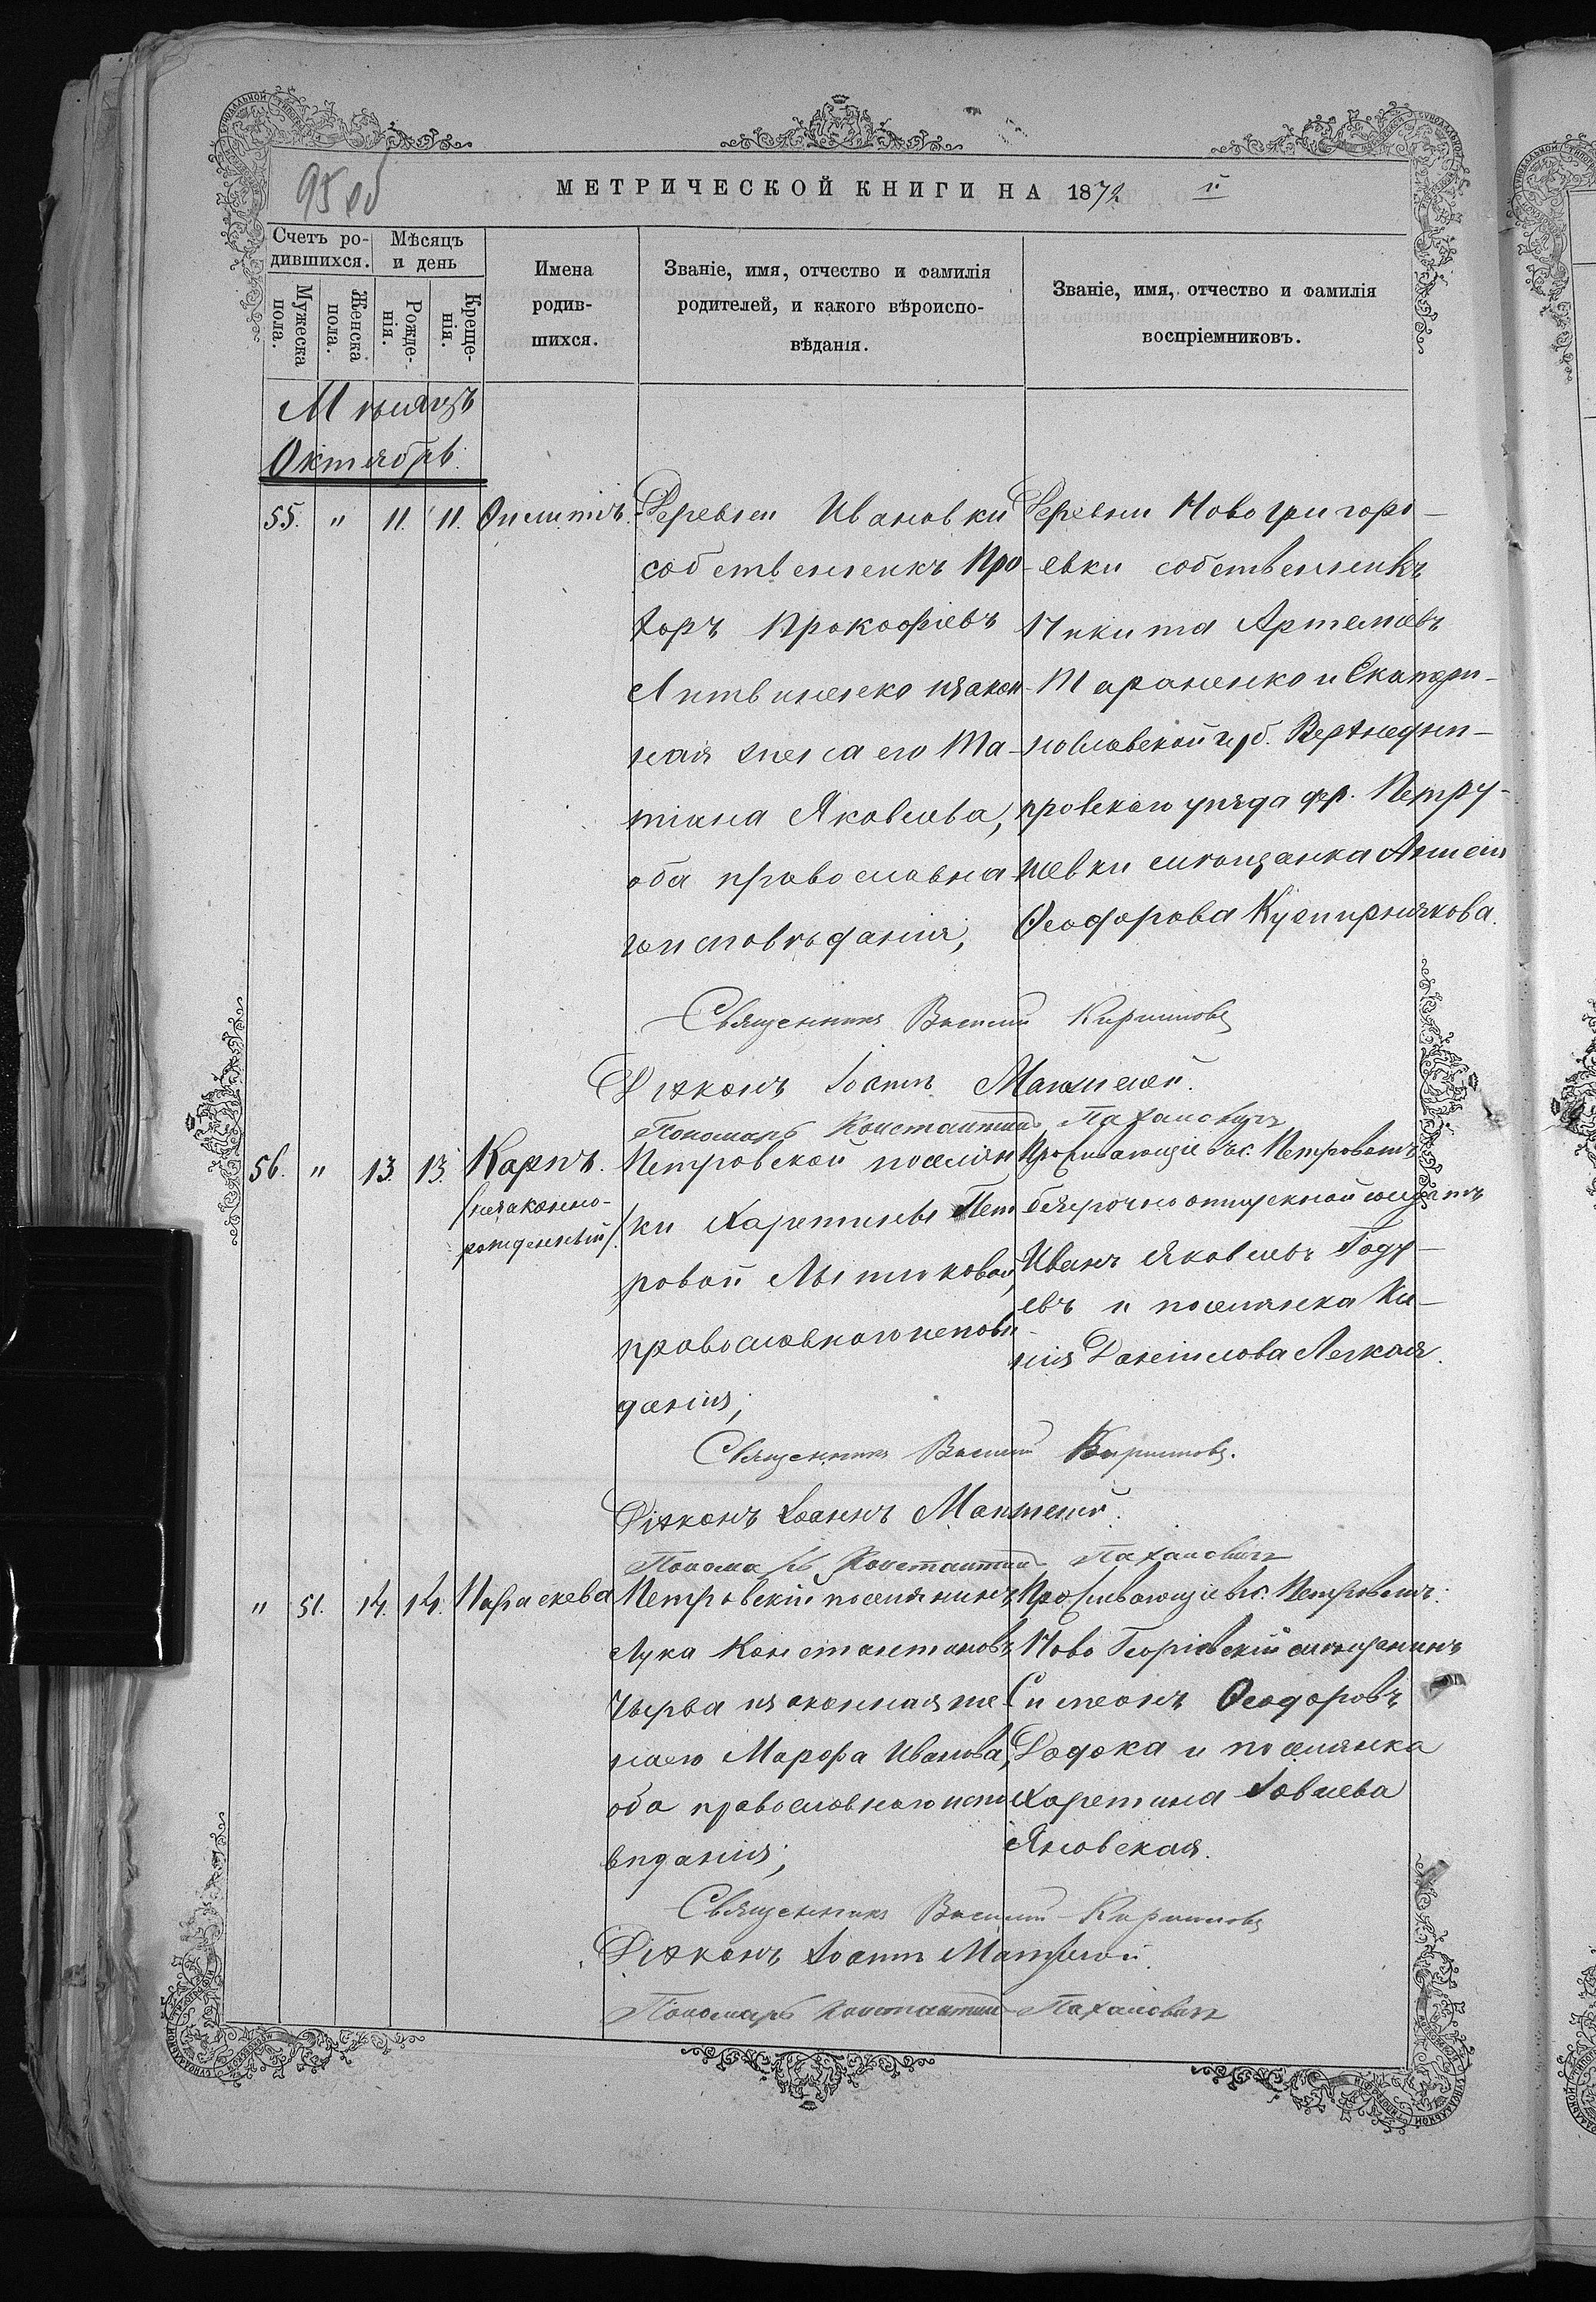 95 об
МЕТРИЧЕСКОЙ КНИГИ НА 1872 й
Счетъ ро-
дившихся.
Мѣсяцъ
и день
Мужеска
пола.
Женска
пола.
Рожде-
нія.
Креще-
нія.
Имена
родив-
шихся.
Званіе, имя, отчество и фамилія
родителей, и какого вѣроиспо-
вѣданія.
Званіе, имя, отчество и фамилія
воспріемниковъ.
Мѣсяцъ
Октябрь.
55. " 11. 11.
Деревни Ивановки
собственникъ Про-
хоръ Прокофіевъ
Литвиненко и закон-
ная жена его Та-
тіана Яковлева,
оба православна-
го исповѣданія;
Деревни Новогригорі-
евки собственникъ
Никита Артемьевъ
Тараненко и Екатери-
нославской губ. Верхнеднѣ-
провскаго уѣзда дер. Петру-
шевки мѣщанка
Ѳеодорова
Священникъ Василій Кириловъ
Діаконъ Іоаннъ
Пономарь Константинъ
56. " 13. 13. Карпъ.
(незаконно-
рожденный).
Петровской поселян-
ки Харитины Пет-
ровой
православнаго исповѣ-
данія;
Проживающіе въ с. Петровомъ
безсрочно отпускной солдатъ
Иванъ Яковлевъ Году-
евъ и поселянка Ки-
нія Даніилова Легкая.
Священникъ Василій Кириловъ.
Діаконъ Іоаннъ
Пономарь Константинъ
" 51. 14. 14. Параскева
Петровскій поселянинъ
Лука Константиновъ
Чирва и законная же-
на его Марфа Иванова,
оба православнаго испо-
вѣданія;
Проживающіе въ с. Петровомъ:
Ново Георгіевскій мѣщанинъ
Симеонъ Ѳеодоровъ
Додока и поселянка
Харитина Іовлева
Яновская.
Священникъ Василій Кириловъ
Діаконъ Іоаннъ
Пономарь Константинъ